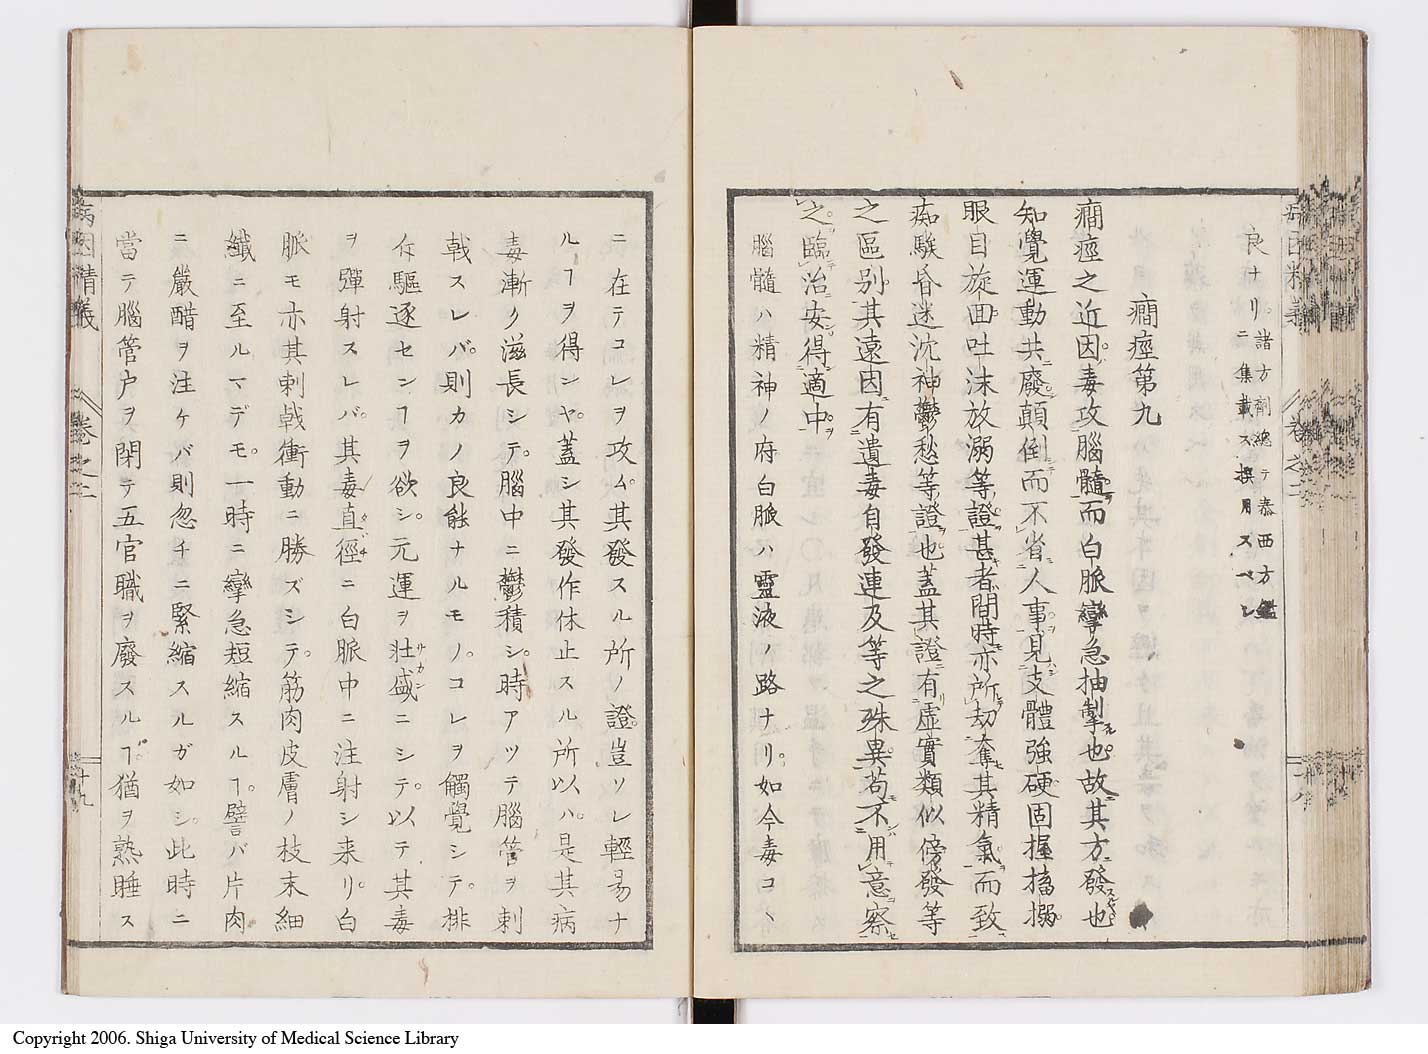 良ナリ諸方劑總テ泰西方鑑
ニ集載ス撰用スベシ
癇痙第九
癇痙之近因毒攻腦髓而白脈攣急抽掣也故其方發也
知覺運動共廢顛倒而不省人事見支體強硬固握搐搦
眼目旋回吐沫放溺等證甚者間時亦所劫奪其精氣而致
痴騃昏迷沈神鬱愁等證也蓋其證有虛實類似傍發等
之區別其遠因有遺毒自發連及等之殊異苟不用意察
之臨治安得適中
腦髓ハ精神ノ府白脈ハ靈液ノ路ナリ如今毒コヽ
ニ在テコレヲ攻ム其發スル所ノ證豈ソレ輕易ナ
ルヿヲ得ンヤ蓋シ其發作休止スル所以ハ是其病
毒漸ク滋長シテ腦中ニ鬱積シ時アツテ腦管ヲ刺
戟スレバ則カノ良能ナルモノコレヲ觸覺シテ排
斥驅逐センヿヲ欲シ元運ヲ壯盛ニシテ以テ其毒
ヲ彈射スレバ其毒直徑ニ白脈中ニ注射シ来リ白
脈モ亦其刺戟衝動ニ勝ズシテ筋肉皮膚ノ枝末細
纖ニ至ルマデモ一時ニ攣急短縮スルヿ譬バ片肉
ニ嚴醋ヲ注ケバ則忽チニ緊縮スルガ如シ此時ニ
當テ腦管户ヲ閉テ五官職ヲ廢スルヿ猶ヲ熟睡ス
病因精義
卷之二
十九
Copyright 2006. Shiga University of Medical Science Library